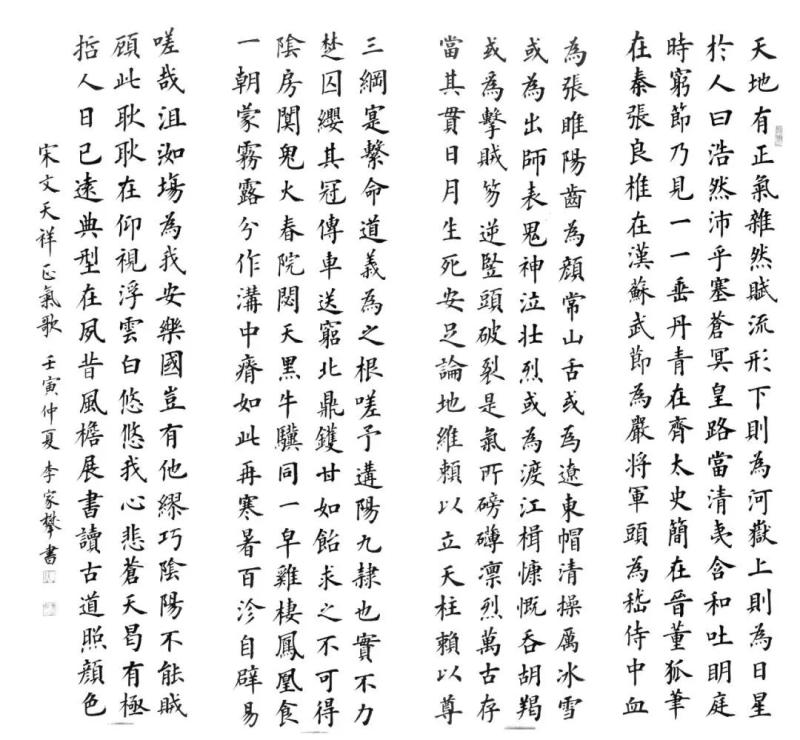 天地有正氣雜然賦流形下則為河嶽上則為日星
於人曰浩然沛乎塞蒼冥皇路當清夷含和吐明庭
時窮節乃見一一垂丹青在齊太史簡在晉董狐筆
在秦張良椎在漢蘇武節為嚴將軍頭為嵇侍中血
為張睢陽齒為顏常山舌或為遼東帽清操厲冰雪
或為出師表鬼神泣壯烈或為渡江楫慷慨吞胡羯
或為擊賊笏逆豎頭破裂是氣所磅礴凛烈萬古存
當其貫日月生死安足論地維賴以立天柱賴以尊
三綱寔繫命道義為之根嗟予遘陽九隸也實不力
楚囚纓其冠傳車送窮北鼎鑊甘如飴求之不可得
陰房闃鬼火春院閟天黑牛驥同一皁雞棲鳳凰食
一朝蒙霧露分作溝中瘠如此再寒暑百沴自辟易
嗟哉沮洳塲為我安樂國豈有他繆巧陰陽不能賊
顧此耿耿在仰視浮雲白悠悠我心悲蒼天曷有極
哲人日已遠典型在夙昔風檐展書讀古道照顏色
宋文天祥正氣歌 壬寅仲夏李家攀書